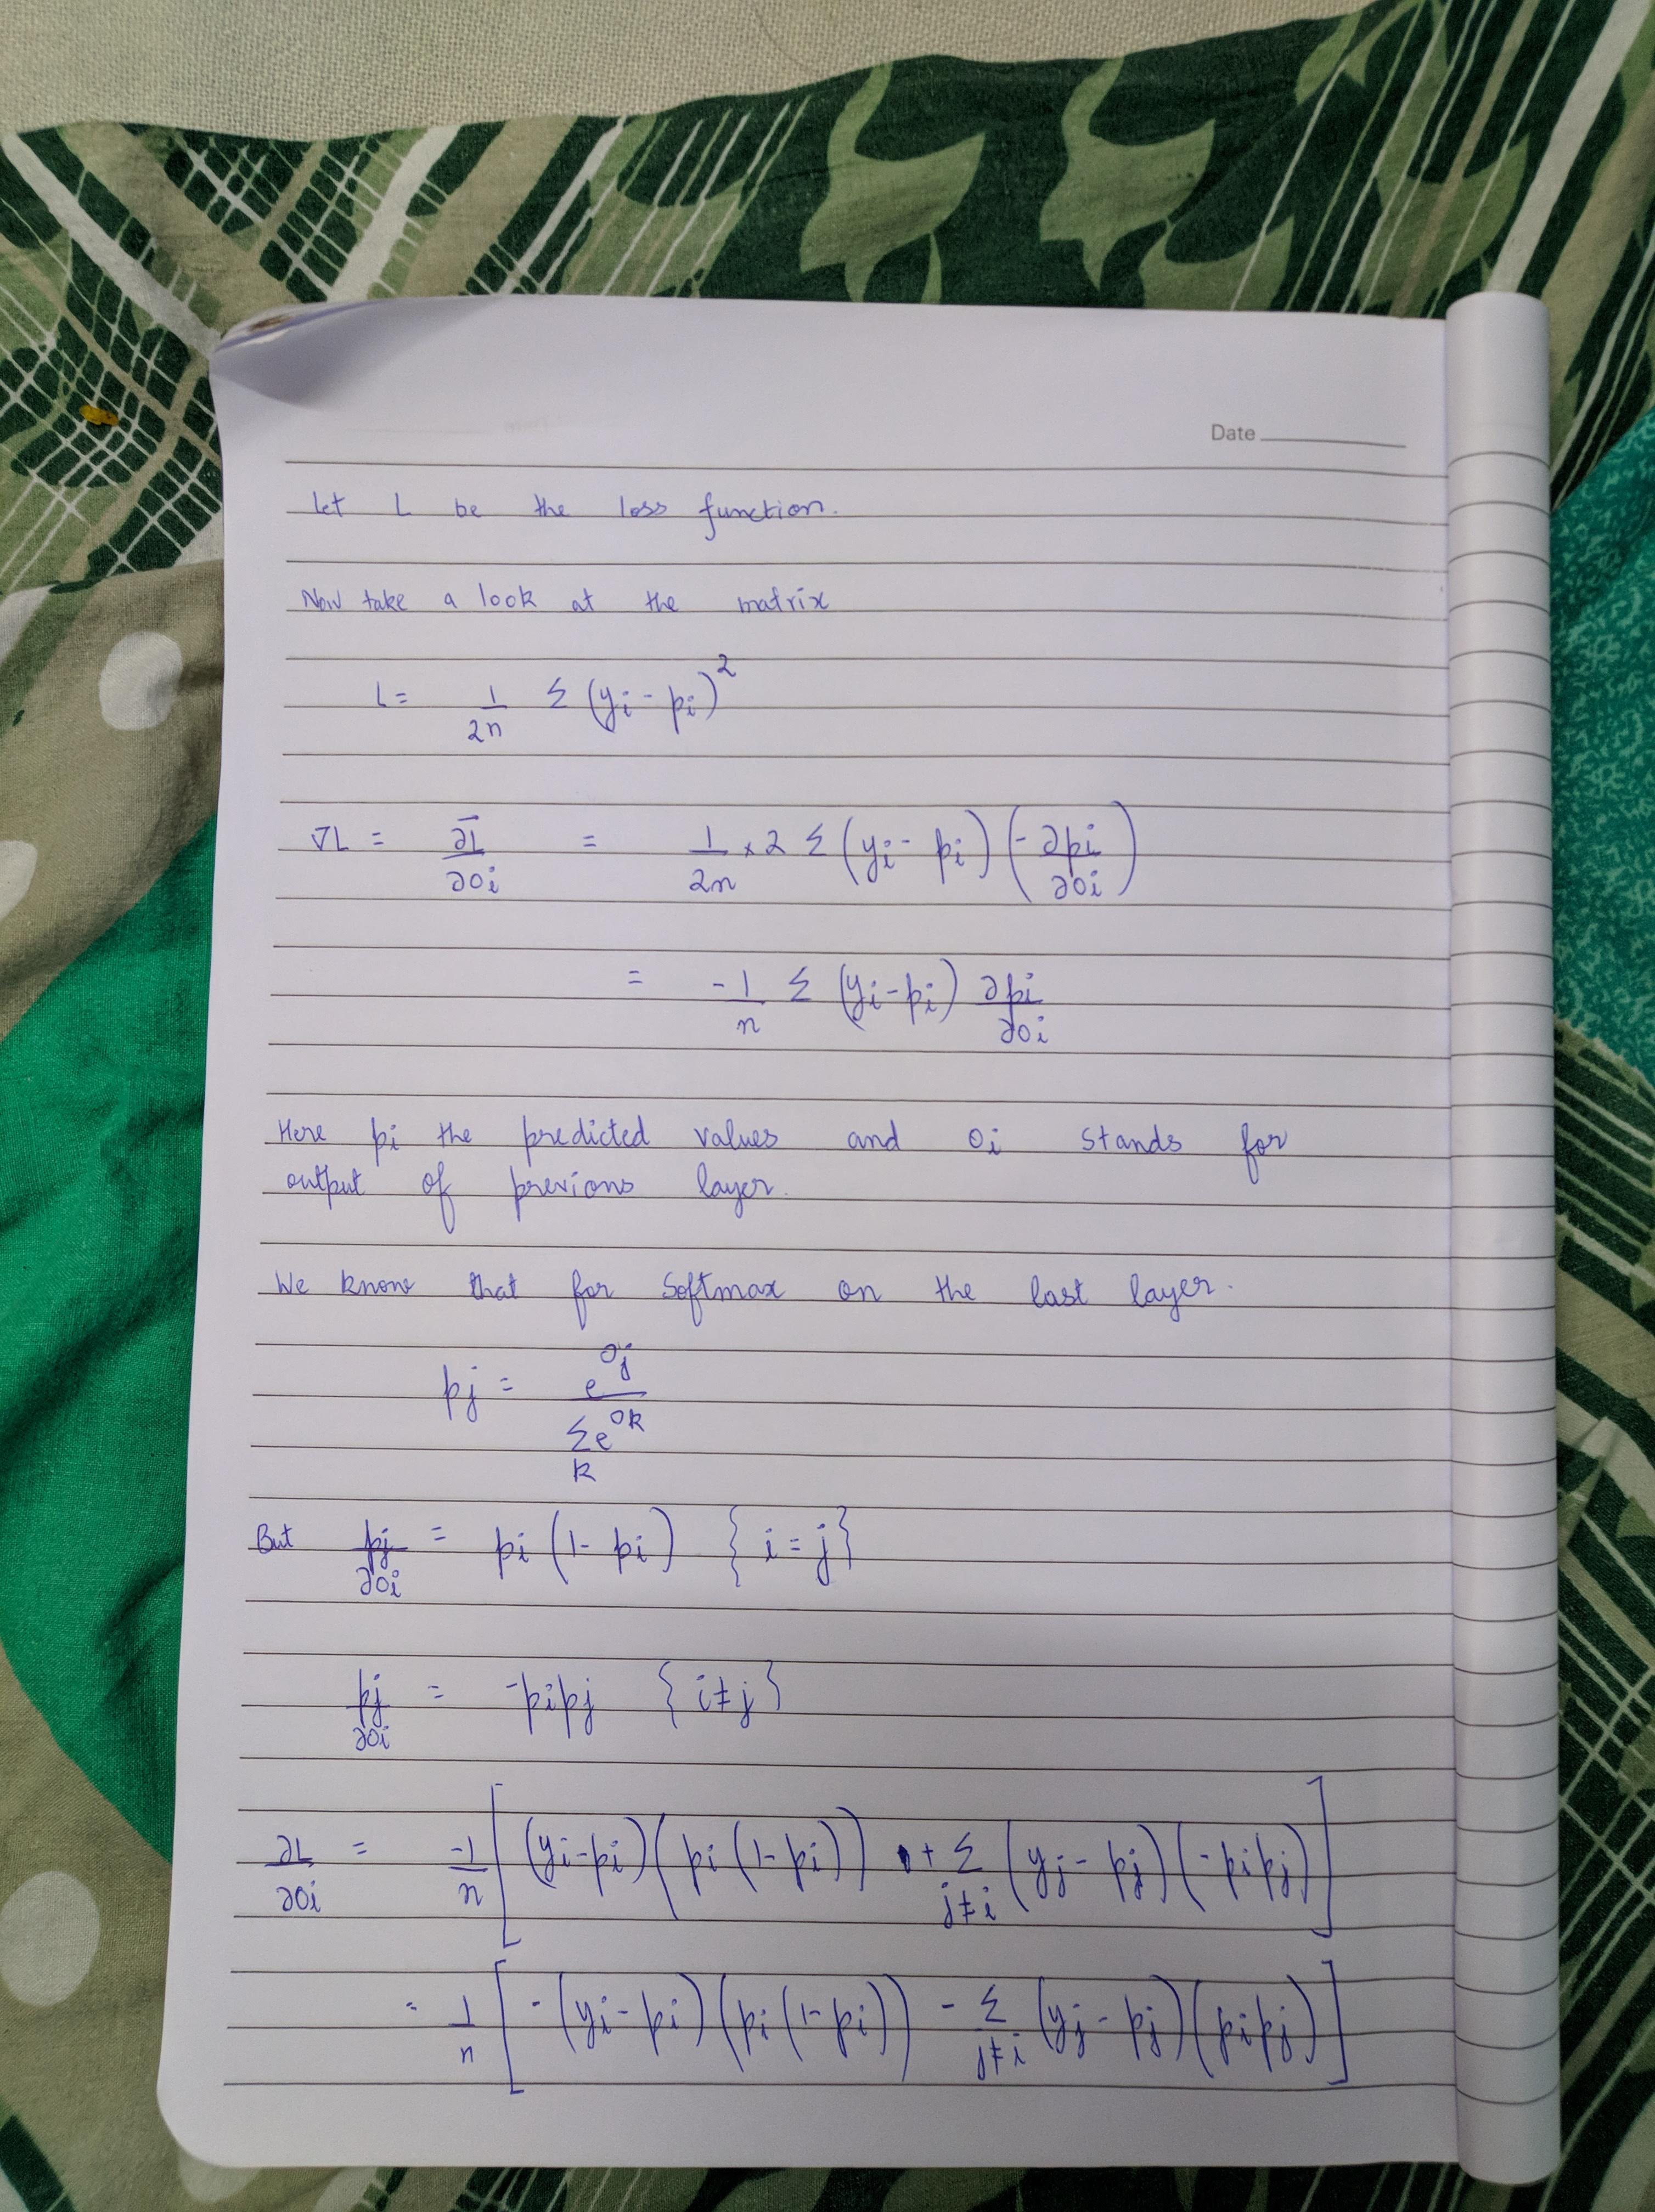 Date
Let L be the loss function.
Now take a look at the matrix
L = 1/2n Σ (yi - pi)^2
∇L = ∂L/∂oi = 1/2n × 2 Σ (yi - pi) (-∂pi/∂oi)
= -1/n Σ (yi - pi) ∂pi/∂oi
Here pi the predicted values and oi stands for
output of previous layer.
We know that for softmax on the last layer.
pj = e^oj / Σ_k e^ok
But pj/∂oi = pi (1 - pi) { i = j }
pj/∂oi = -pipj { i ≠ j }
∂L/∂oi = -1/n [ (yi - pi) (pi (1 - pi)) + Σ_j≠i (yj - pj) (-pipj) ]
= 1/n [ - (yi - pi) (pi (1 - pi)) - Σ_j≠i (yj - pj) (pipj) ]